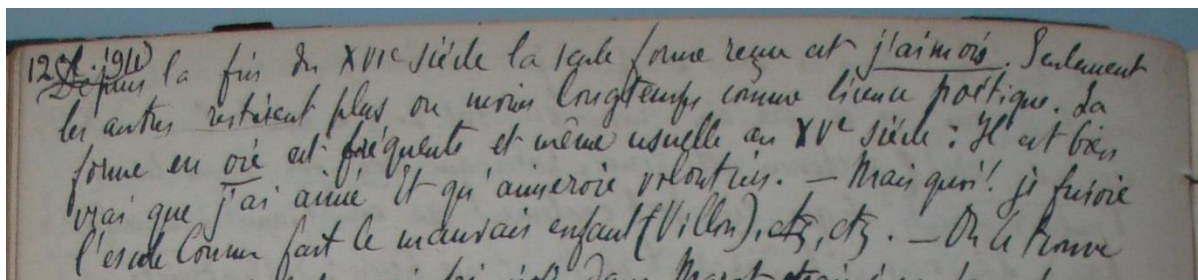 Depuis la fin du XVIe siècle la seule forme reçue est j'aimois. Seulement
les autres restèrent plus ou moins longtemps comme licence poétique. La
forme en oie est fréquente et même usuelle au XVe siècle : Il est bien
vrai que j'ai aimé Et qu'aimeroie volontiers. — Mais quoi! je fuioie
l'escole Comme fait le mauvais enfant (Villon), etc, etc. — On le trouve
dans Marot